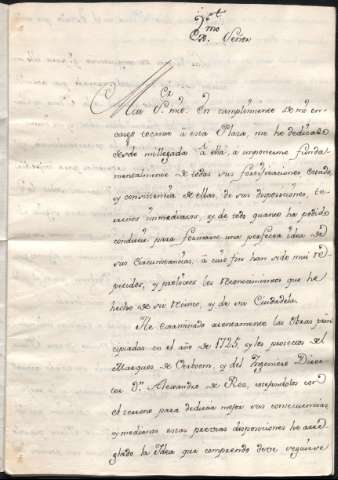 Exmo. Señor
Muy Sr. mío. En cumplimiento de mi en-
cargo tocante à esta Plaza, me he dedicado
desde mi llegada à ella, à imponerme funda-
mentalmente de todas sus fortificaciones, estado,
y consistencia de ellas, de sus disposiciones, te-
rrenos inmediatos, y de todo quanto ha podido
conducir para formarme una perfecta idea de
sus circunstancias, à cuio fin han sido mui re-
petidos, y prolixos los reconocimientos que he
hecho de su recinto, y de su Ciudadela.
He examinado atentamente las Obras prin-
cipiadas en el año de 1725, y los proiectos del
Marques de Verboom, y del Ingeniero Direc-
tor Dn. Alexandro de Rez, cotejandolos con
el terreno para deducir mejor sus consecuencias
y mediante estas precisas disposiciones he arre-
glado la Idea que comprendo deve seguirse